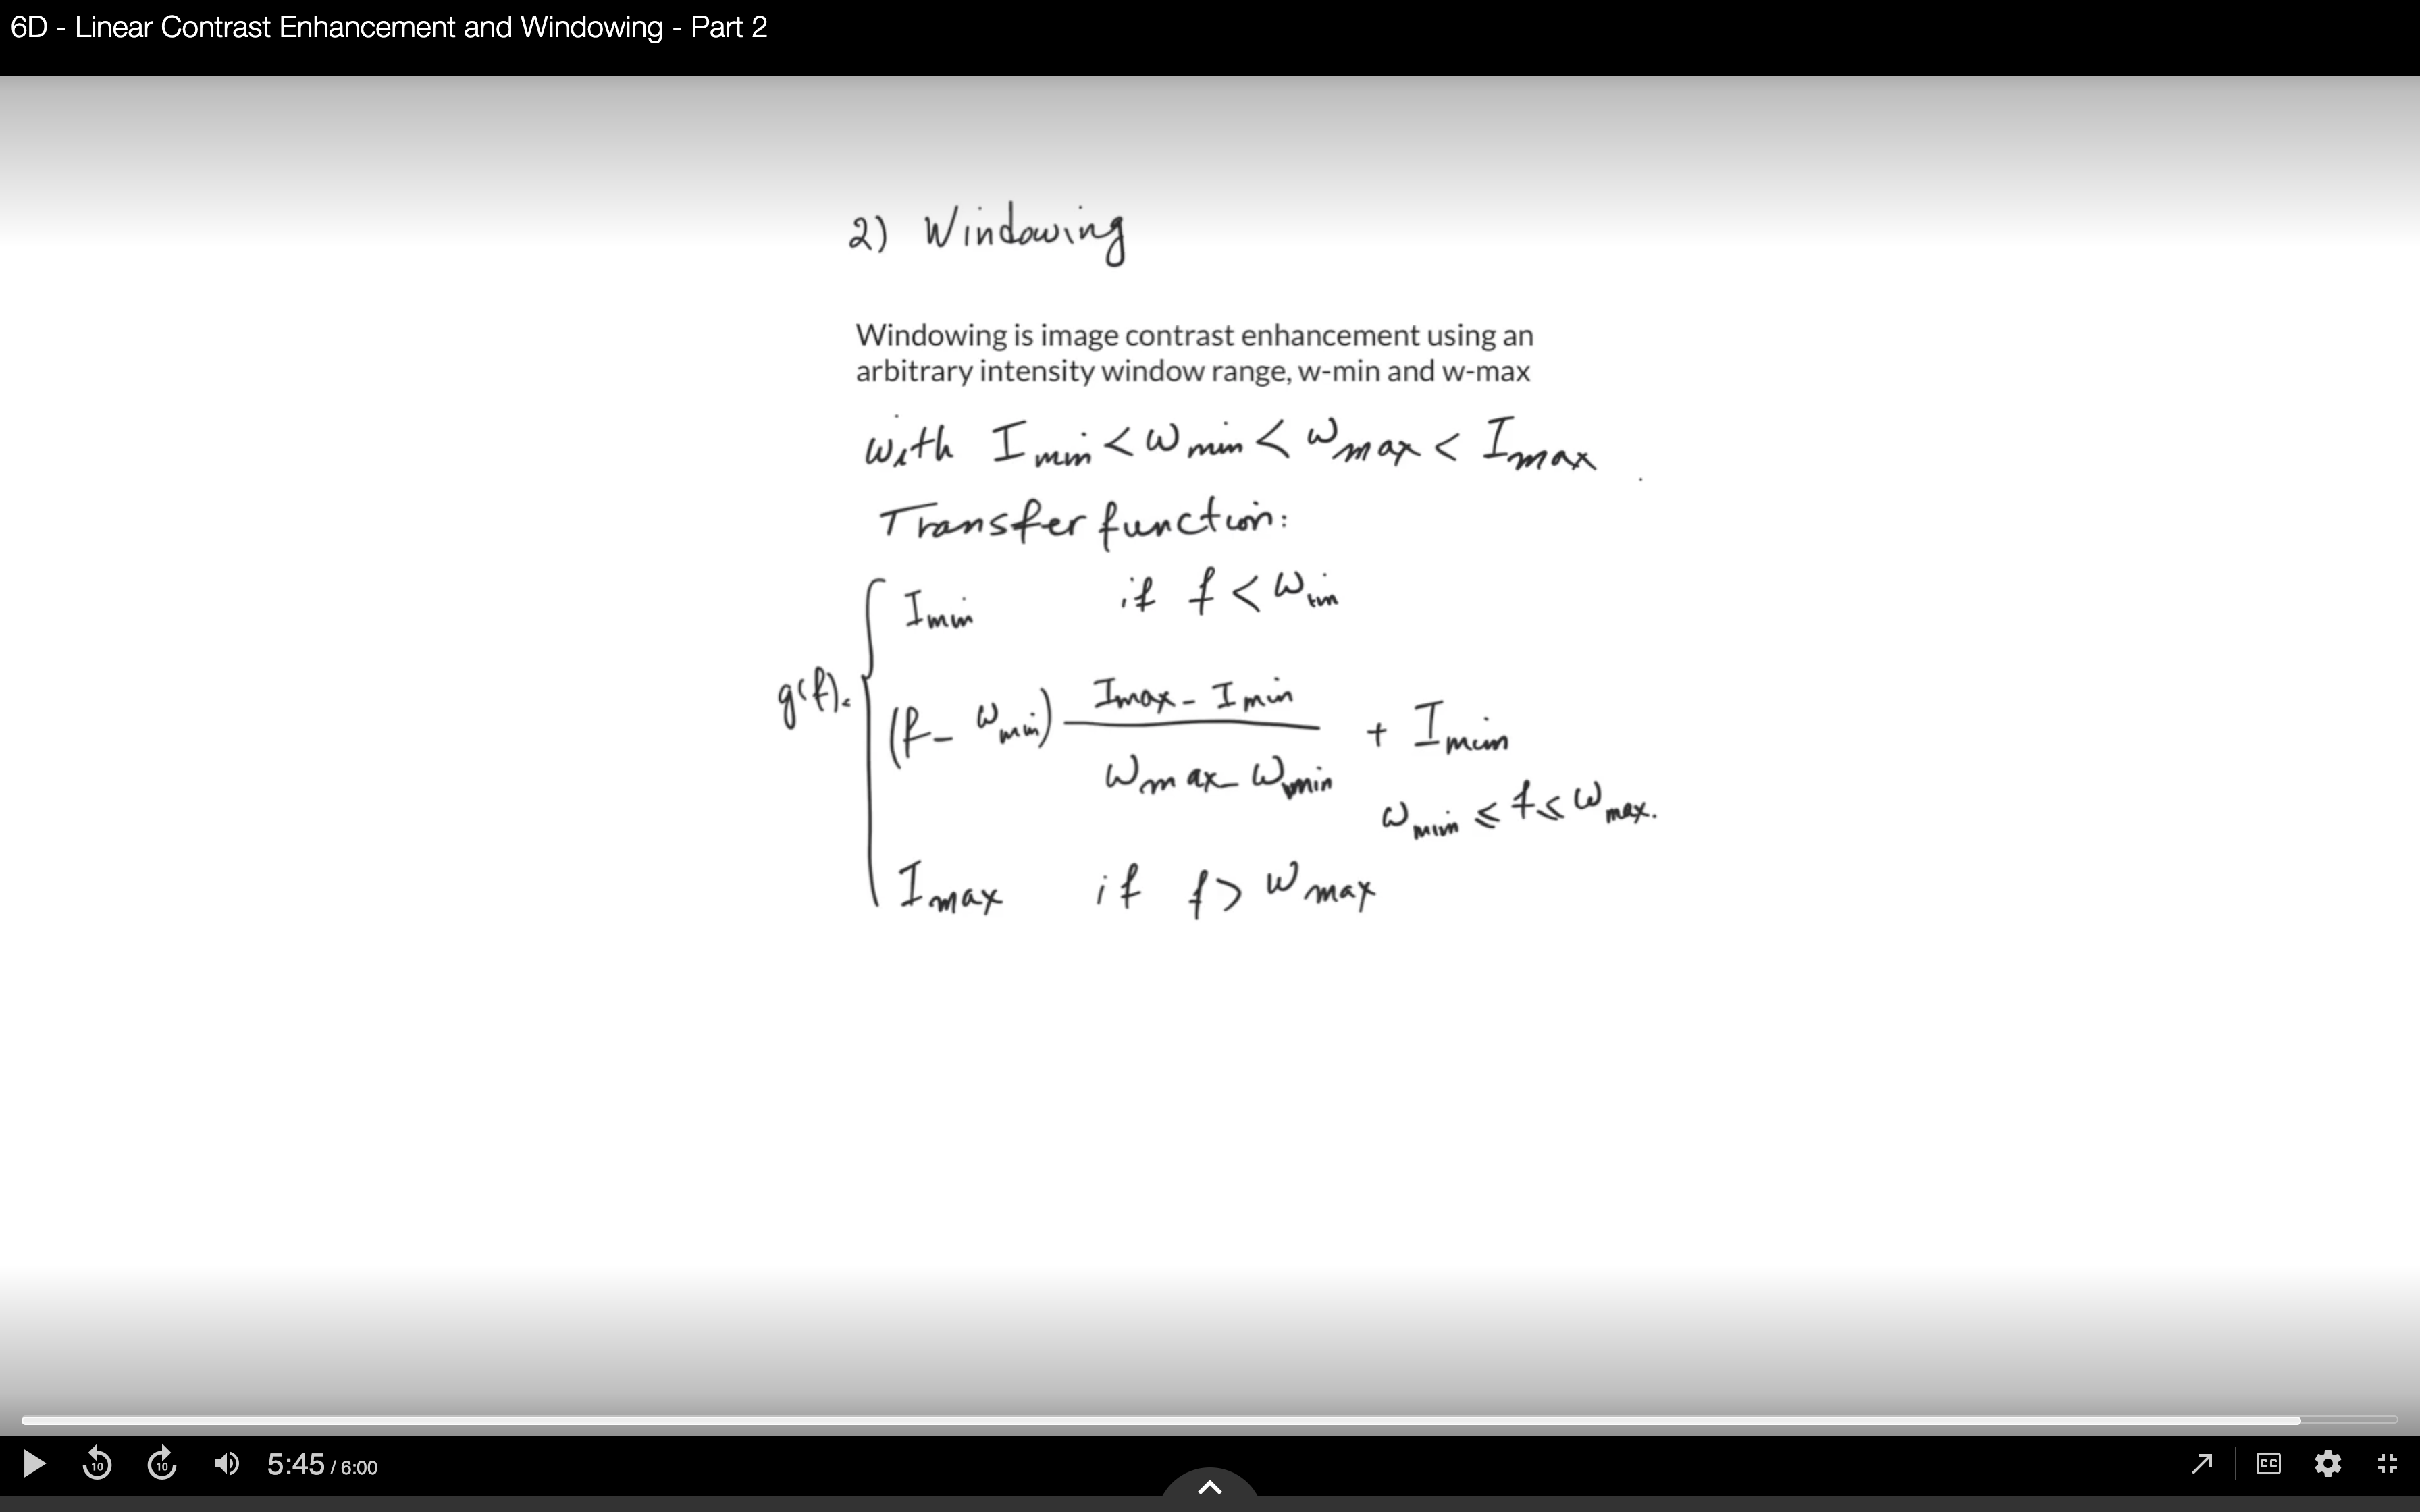 6D - Linear Contrast Enhancement and Windowing - Part 2
2) Windowing
Windowing is image contrast enhancement using an
arbitrary intensity window range, w-min and w-max
with I min < ω min < ω max < I max
Transfer function:
I min if f < ω
g(f)
(f - ω min) I max - I min / ω max - ω min + I min
ω min ≤ f ≤ ω max.
I max if f > ω max
10 10 5:45 / 6:00 CC